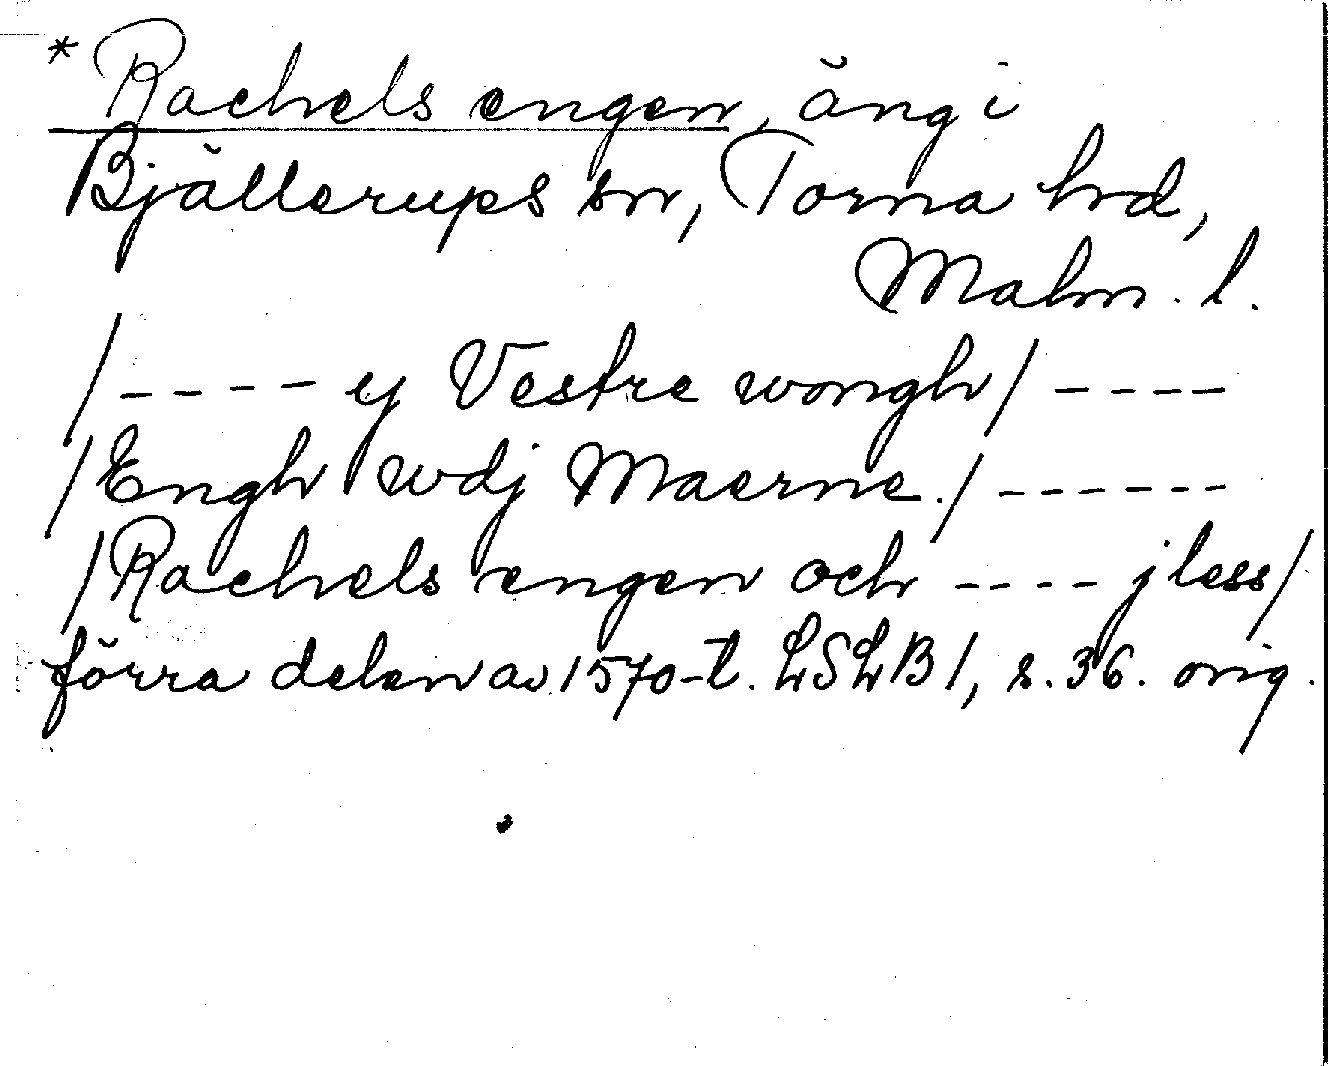 * Rachels engen, äng i
Bjällerups sn, Torna hd,
Malm. l.
/---- ej Vestre wongh/ ----
/Engh wdj Maerne./ ------
/Rachels engen och ---- j less/
förra delen av 1570-t. LSLB 1, s. 36. orig.